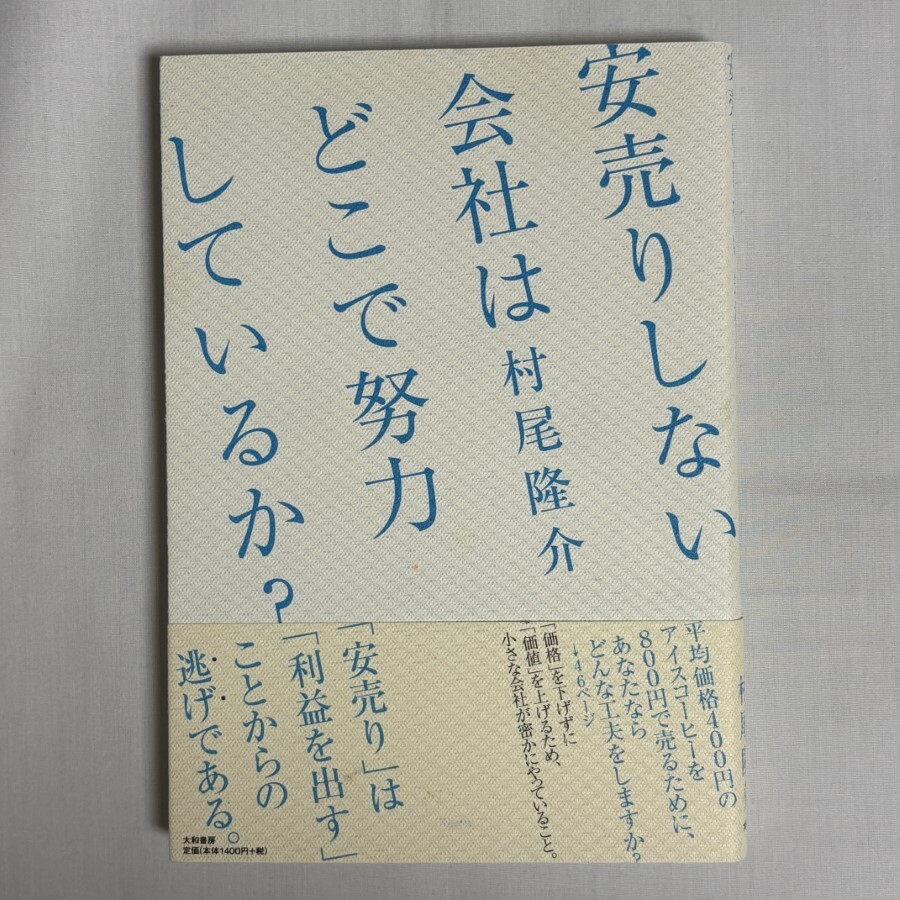 安売りしない
会社は
どこで努力
しているか？
村尾隆介
平均価格400円の
アイスコーヒーを
800円で売るために、
あなたなら
どんな工夫をしますか？
→46ページ
「価格」を下げずに
「価値」を上げるため、
小さな会社が密かにやっていること。
「安売り」は
「利益を出す」
ことからの
逃げである。
大和書房
定価（本体1400円+税）